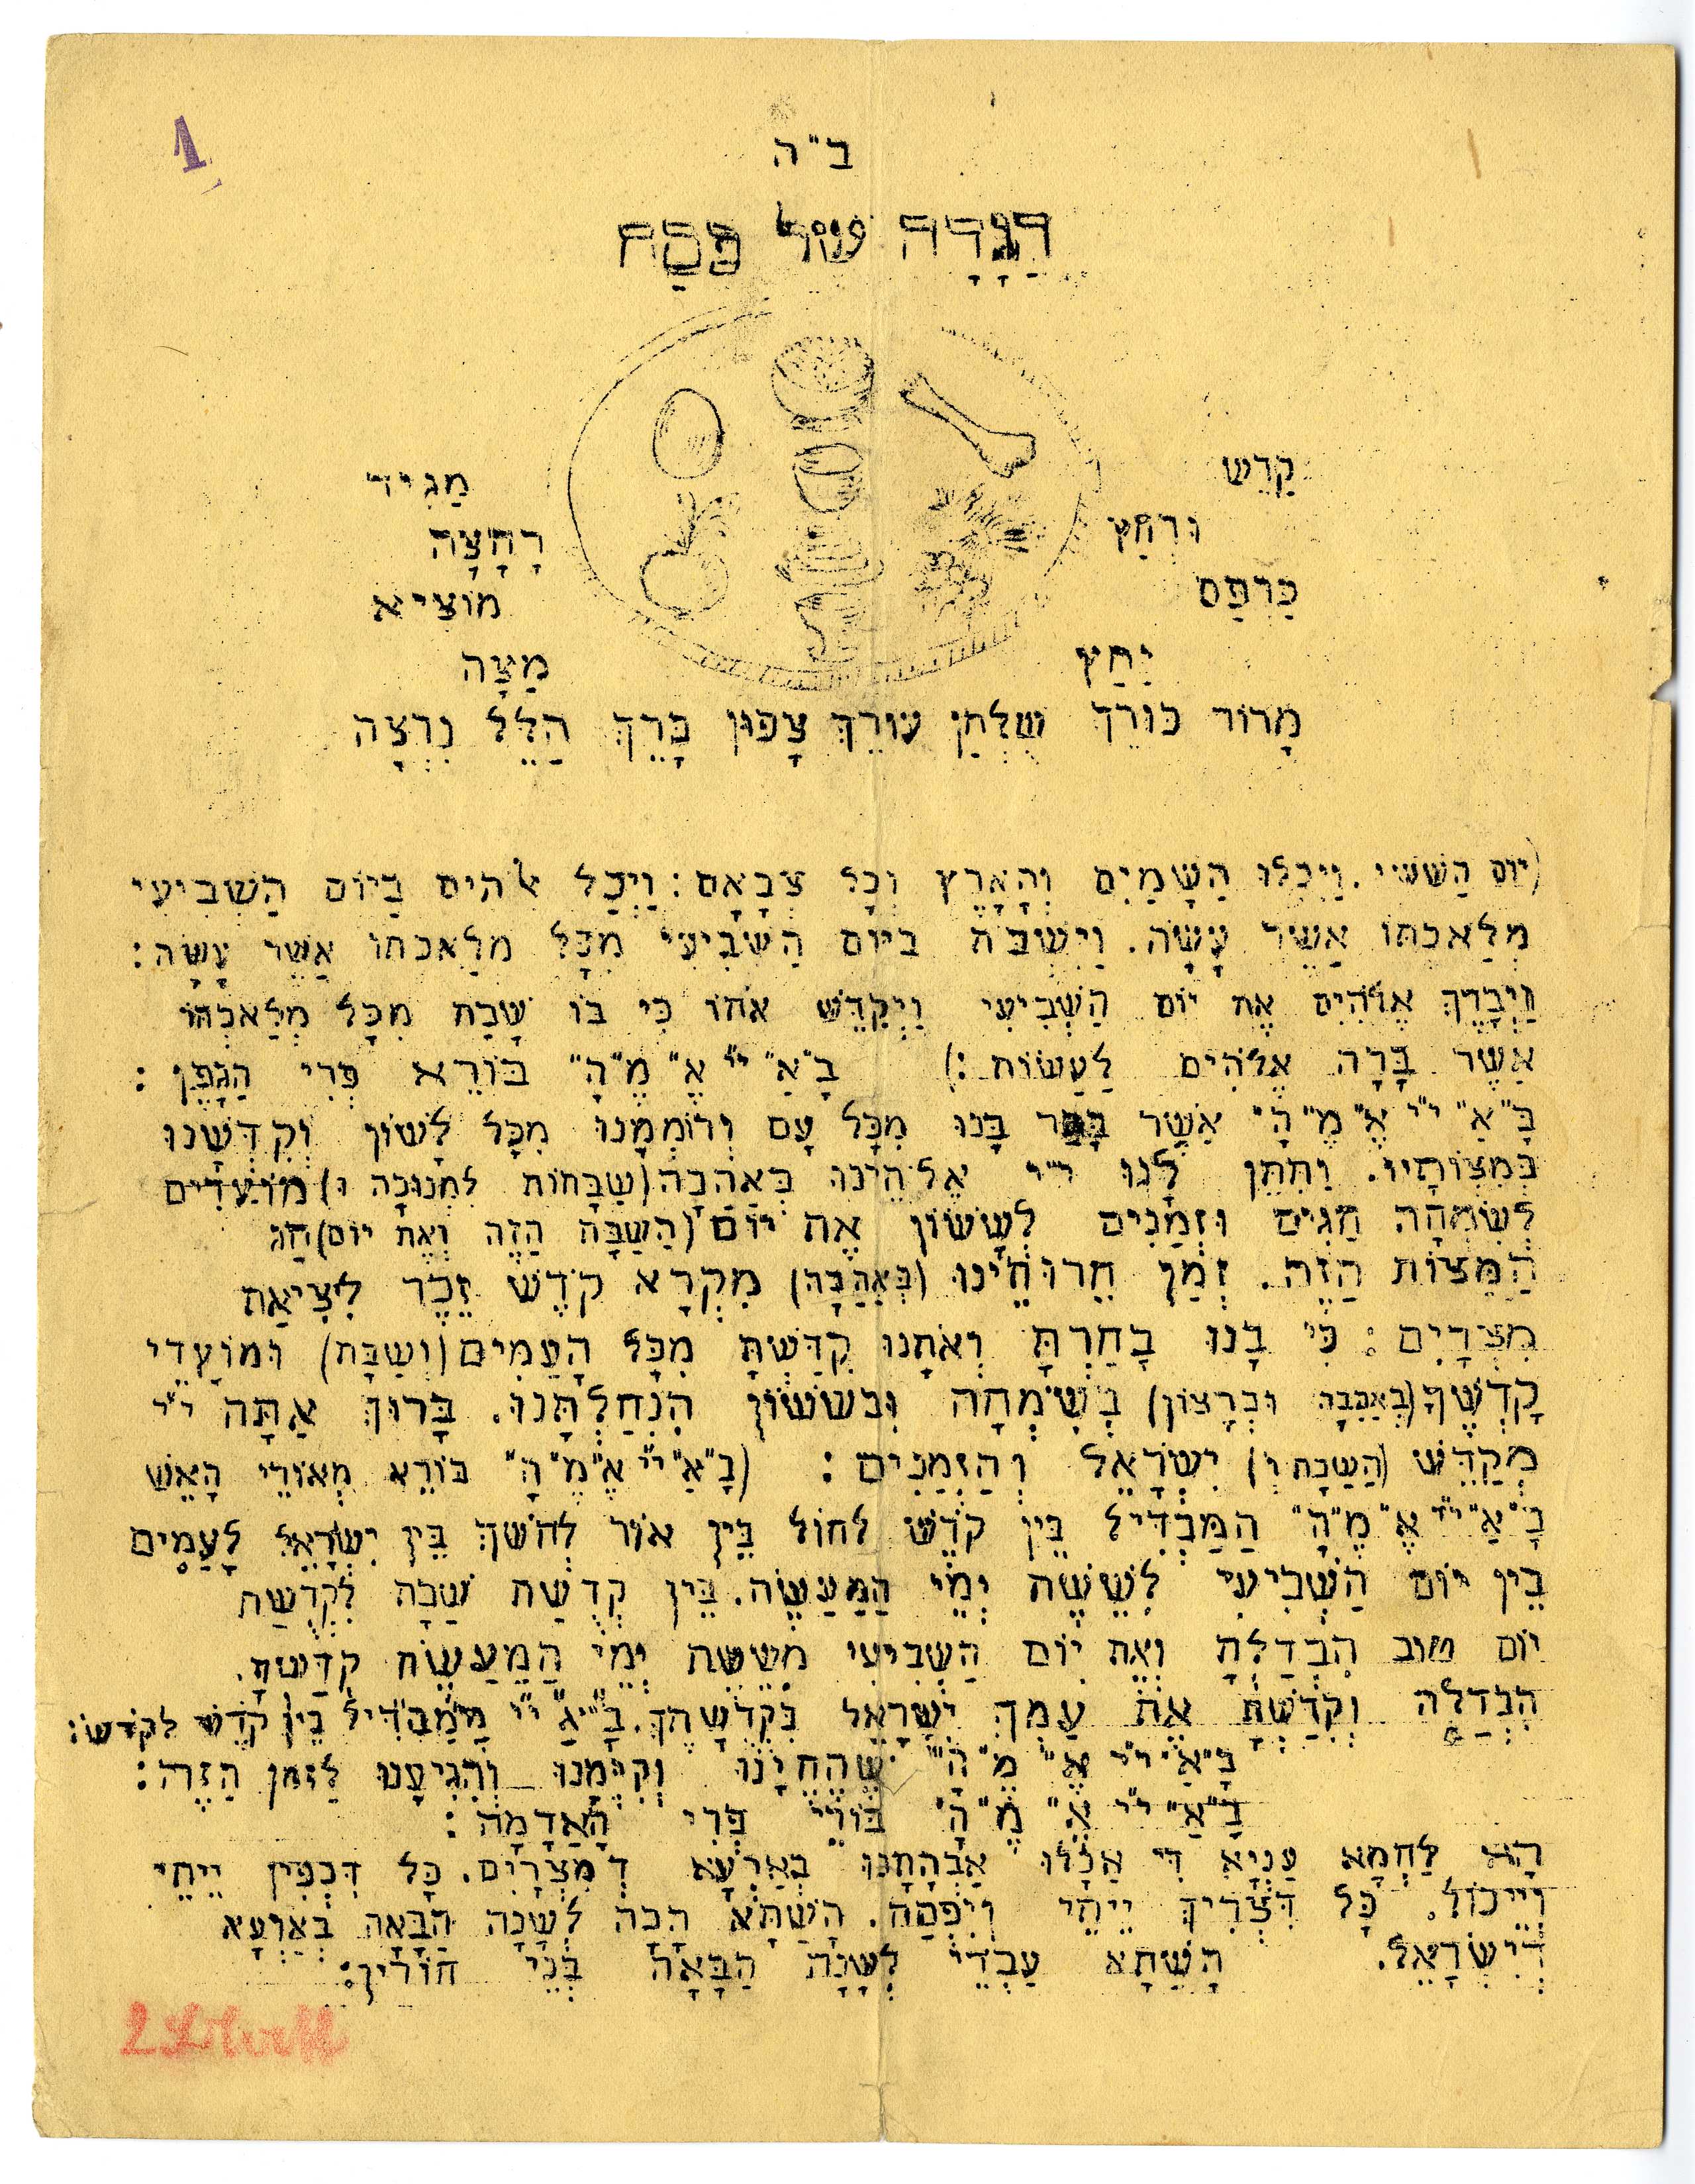 1
ב"ה
הַגָּדָה שֶׁל פֶּסַח
קַדֵּשׁ
וּרְחַץ
כַּרְפַּס
יַחַץ
מַגִּיד
רָחְצָה
מוֹצִיא
מַצָּה
מָרוֹר כּוֹרֵךְ שֻׁלְחָן עוֹרֵךְ צָפוּן בָּרֵךְ הַלֵּל נִרְצָה
(יוֹם הַשִּׁשִּׁי. וַיְכֻלּוּ הַשָּׁמַיִם וְהָאָרֶץ וְכָל צְבָאָם: וַיְכַל אלהים בַּיּוֹם הַשְּׁבִיעִי
מְלַאכְתּוֹ אֲשֶׁר עָשָׂה. וַיִּשְׁבֹּת ביום הַשְּׁבִיעִי מִכָּל מלַאכתו אֲשֶׁר עָשָׂה:
וַיְבָרֶךְ אֱלֹהִים אֶת יוֹם הַשְּׁבִיעִי וַיְקַדֵּשׁ אֹתוֹ כִּי בוֹ שָׁבַת מִכָּל מְלַאכְתּוֹ
אֲשֶׁר בָּרָה אֱלֹהִים לַעֲשׂוֹת:) בָּ"אַ"יי"אֱ"מֶ"הָ" בּוֹרֵא פְּרִי הַגָּפֶן:
בָּ"אַ"יי"אֱ"מֶ"הָ" אֲשֶׁר בחר בָּנוּ מִכָּל עָם וְרוֹמְמָנוּ מִכָּל לָשׁוֹן וְקִדְּשָׁנוּ
בְּמִצְוֹתָיו. וַתִּתֵּן לָנוּ יי אֱלֹהֵינוּ בְּאַהֲבָה (שַׁבָּתוֹת לִמְנוּכָה וּ) מוֹעֲדִים
לְשִׂמְחָה חַגִּים וּזְמַנִּים לְשָׂשׂוֹן אֶת יוֹם (הַשַּׁבָּת הַזֶּה וְאֶת יוֹם) חַג
הַמַּצּוֹת הַזֶּה. זְמַן חֵרוּתֵינוּ (בְּאַהֲבָה) מִקְרָא קֹדֶשׁ זֵכֶר לִיצִיאַת
מִצְרָיִם: כִּי בָנוּ בָחַרְתָּ וְאֹתָנוּ קִדַּשְׁתָּ מִכָּל הָעַמִּים (וְשַׁבָּת) וּמוֹעֲדֵי
קָדְשֶׁךָ (בְּאַהֲבָה וּבְרָצוֹן) בְּשִׂמְחָה וּבְשָׂשׂוֹן הִנְחַלְתָּנוּ. בָּרוּךְ אַתָּה יי
מְקַדֵּשׁ (הַשַּׁבָּת וְ) יִשְׂרָאֵל וְהַזְּמַנִּים: (בָּ"אַ"יי"אֱ"מֶ"הָ" בּוֹרֵא מְאוֹרֵי הָאֵשׁ
בָּ"אַ"יי"אֱ"מֶ"הָ" הַמַּבְדִּיל בֵּין קֹדֶשׁ לחוֹל בֵּין אוֹר לְחֹשֶׁךְ בֵּין יִשְׂרָאֵל לָעַמִּים
בֵּין יוֹם הַשְּׁבִיעִי לְשֵׁשֶׁת יְמֵי הַמַּעֲשֶׂה. בֵּין קְדֻשַּׁת שַׁבָּת לִקְדֻשַּׁת
יוֹם טוב הִבְדַּלְתָּ וְאֶת יוֹם הַשְּׁבִיעִי מִשֵּׁשֶׁת יְמֵי הַמַּעֲשֶׂה קִדַּשְׁתָּ.
הִבְדַּלְתָּ וְקִדַּשְׁתָּ אֶת עַמְּךָ יִשְׂרָאֵל בִּקְדֻשָּׁתֶךָ. בָּ"אַ"יי הַמַּבְדִּיל בֵּין קֹדֶשׁ לקֹדֶשׁ:
בָּ"אַ"יי"אֱ"מֶ"הָ" שֶׁהֶחֱיָנוּ וְקִיְּמָנוּ וְהִגִּיעָנוּ לַזְּמַן הַזֶּה:
בָּ"אַ"יי"אֱ"מֶ"הָ" בּוֹרֵי פְּרִי הָאֲדָמָה:
הָא לַחְמָא עַנְיָא דִּי אֲכָלוּ אַבְהָתָנוּ בְּאַרְעָא דְמִצְרָיִם. כָּל דִּכְפִין יֵיתֵי
וְיֵיכוֹל. כָּל דִּצְרִיךְ יֵיתֵי וְיִפְסַח. הָשַׁתָּא הָכָה לְשָׁנָה הַבָּאָה בְּאַרְעָא
דְיִשְׂרָאֵל. הָשַׁתָּא עַבְדֵי לְשָׁנָה הַבָּאָה בְּנֵי חוֹרִין: